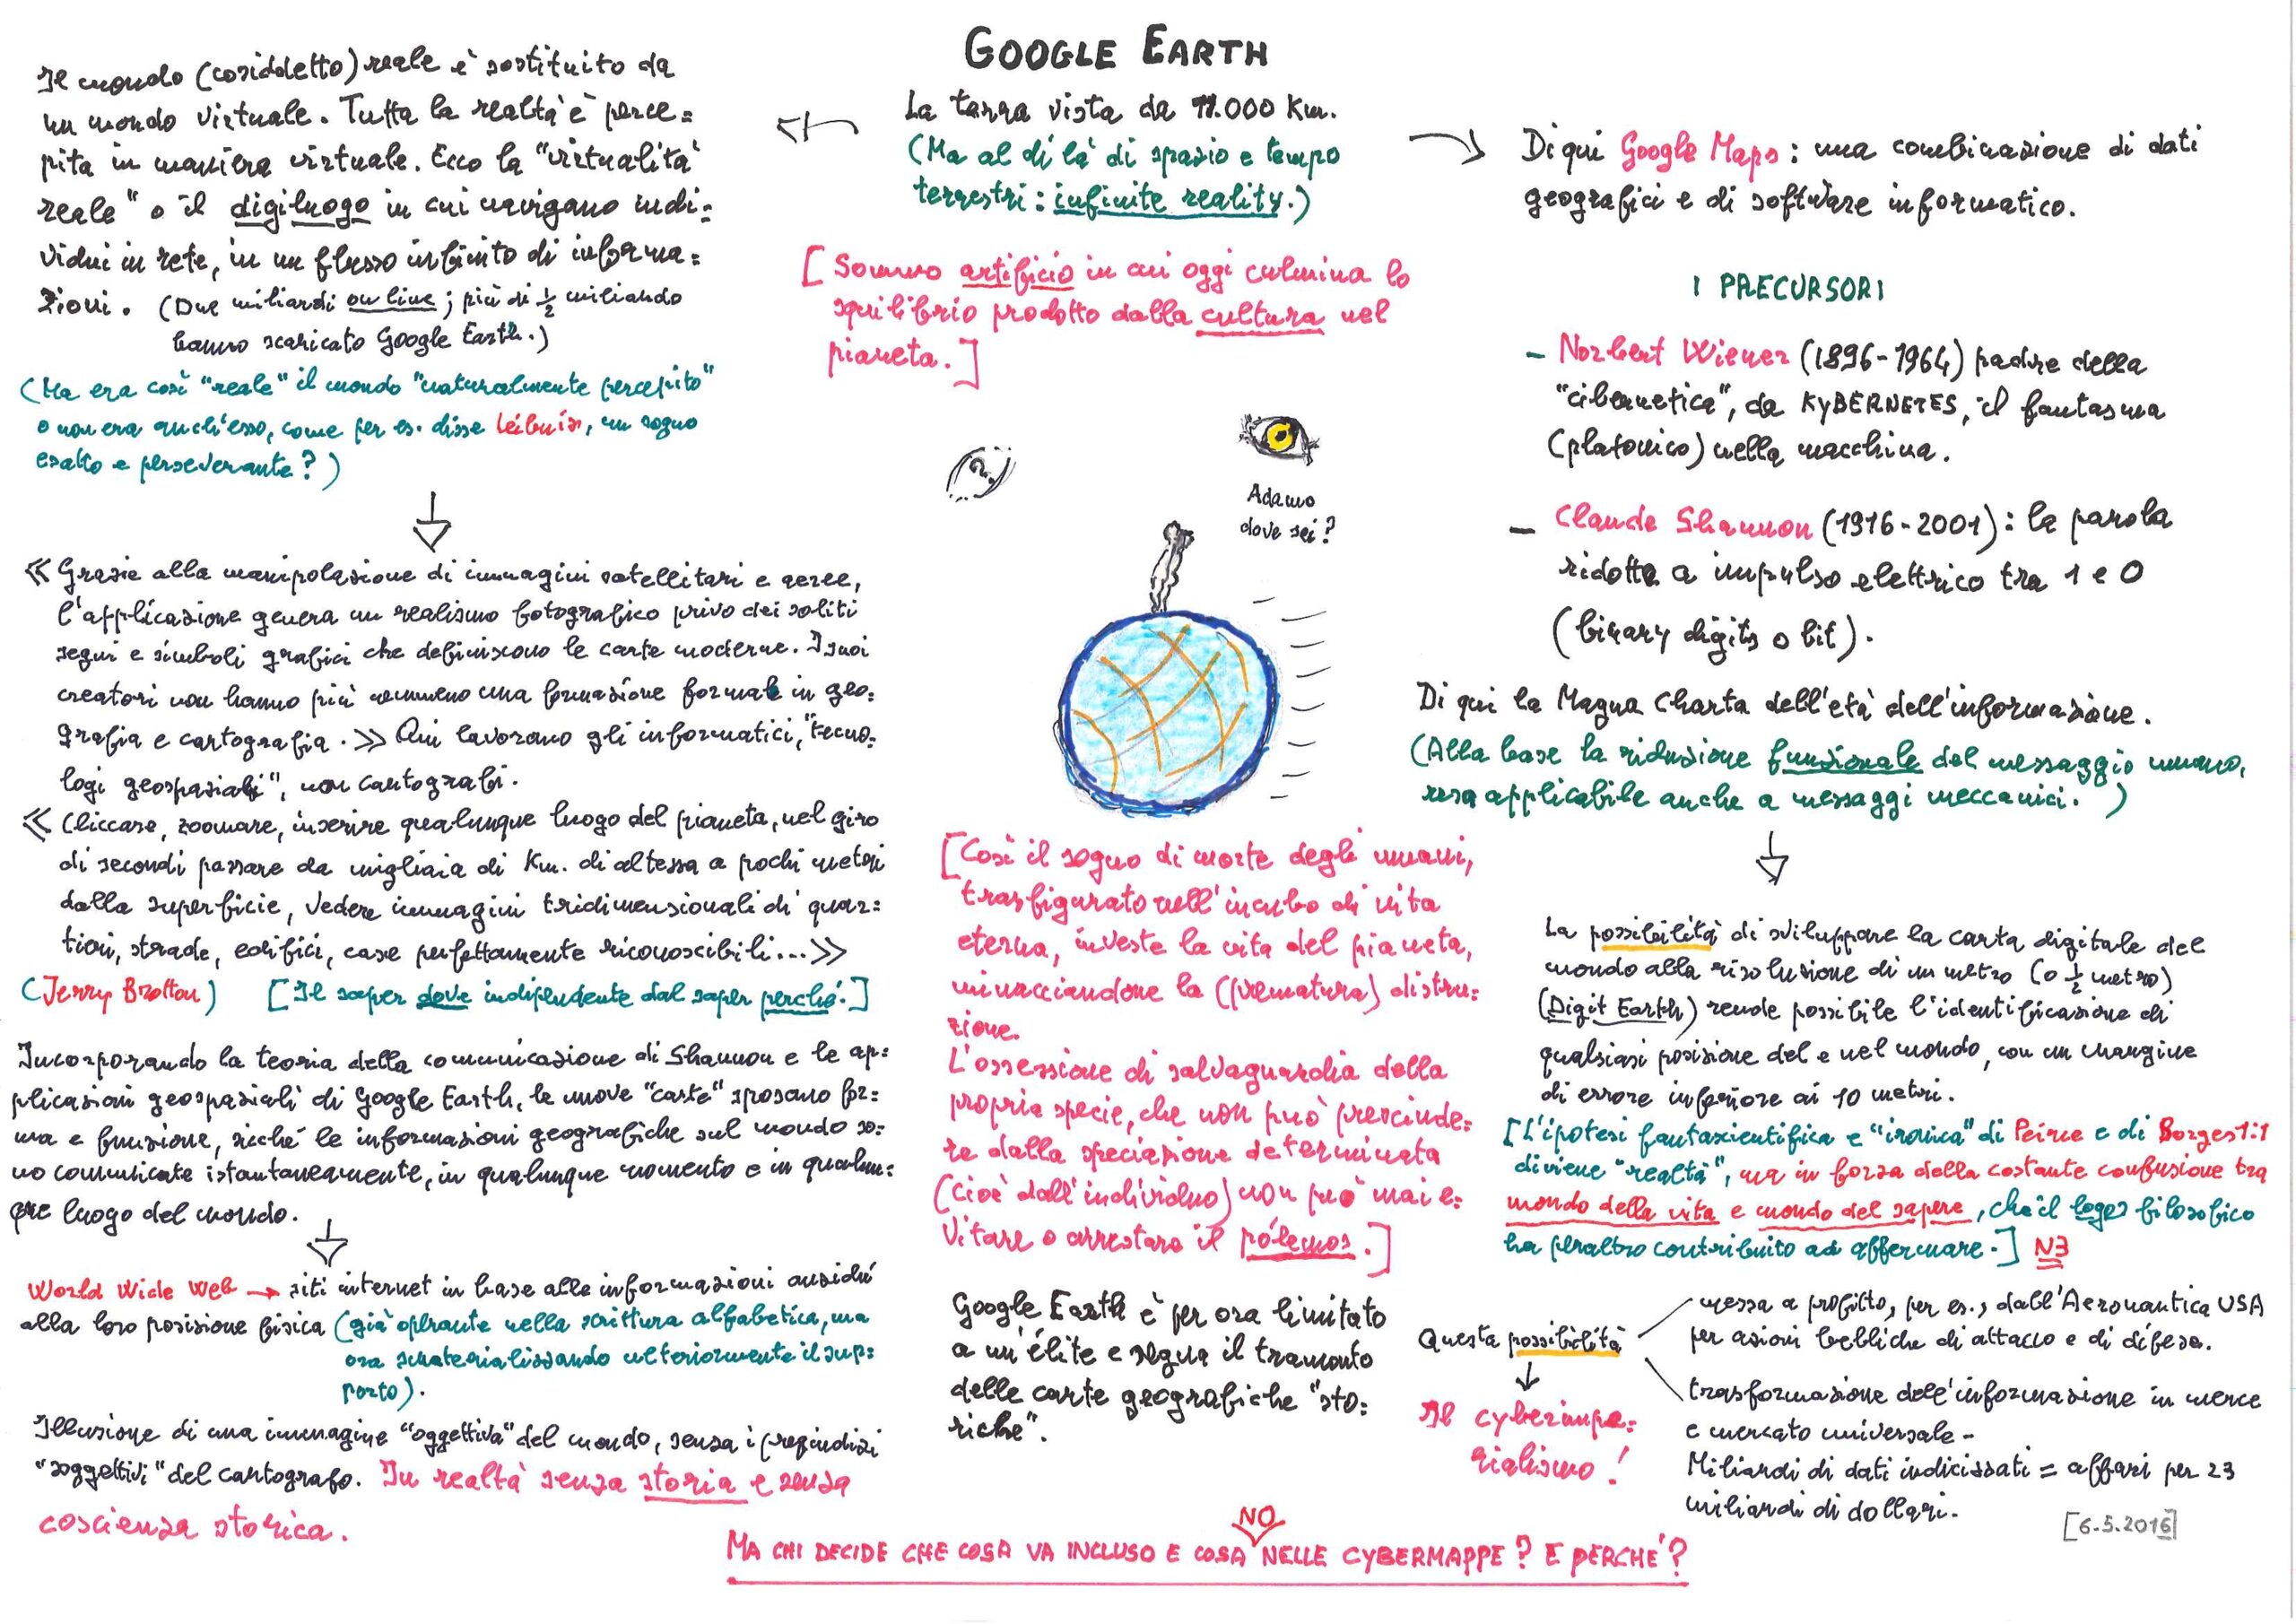 GOOGLE EARTH
La terra vista da 11.000 Km.
(Ma al di là di spazio e tempo
terrestri: infinite reality.)
[Sommo artificio in cui oggi culmina lo
squilibrio prodotto dalla cultura nel
pianeta.]
Il mondo (cosiddetto) reale è sostituito da
un mondo virtuale. Tutta la realtà è perce=
pita in maniera virtuale. Ecco la "virtualità
reale" o il digiluogo in cui navigano indi=
vidui in rete, in un flusso infinito di informa=
zioni. (Due miliardi on line; più di ½ miliardo
hanno scaricato Google Earth.)
(Ma era così "reale" il mondo "naturalmente percepito"
o non era anch'esso, come per es. disse Leibniz, un sogno
esatto e perseverante?)
«Grazie alla manipolazione di immagini satellitari e aeree,
l'applicazione genera un realismo fotografico privo dei soliti
segni e simboli grafici che definiscono le carte moderne. I suoi
creatori non hanno più nemmeno una formazione formale in geo=
grafia e cartografia.» Qui lavorano gli informatici, "tecno=
logi geospaziali", non cartografi.
«Cliccare, zoomare, inserire qualunque luogo del pianeta, nel giro
di secondi passare da migliaia di Km. di altezza a pochi metri
dalla superficie, vedere immagini tridimensionali di quar=
tieri, strade, edifici, case perfettamente riconoscibili...»
(Jerry Brotton) [Il saper dove indipendente dal saper perché.]
Incorporando la teoria della comunicazione di Shannon e le ap=
plicazioni geospaziali di Google Earth, le nuove "carte" sposano for=
ma e funzione, sicché le informazioni geografiche sul mondo so=
no comunicate istantaneamente, in qualunque momento e in qualun=
que luogo del mondo.
World Wide Web → siti internet in base alle informazioni anziché
alla loro posizione fisica (già operante nella scrittura alfabetica, ma
ora smaterializzando ulteriormente il sup=
porto).
Illusione di una immagine "oggettiva" del mondo, senza i pregiudizi
"soggettivi" del cartografo. In realtà senza storia e senza
coscienza storica.
Adamo
dove sei?
[Così il sogno di morte degli umani,
trasfigurato nell'incubo di vita
eterna, investe la vita del pianeta,
minacciandone la (prematura) distru=
zione.
L'ossessione di salvaguardia della
propria specie, che non può prescinde=
re dalla speciazione determinata
(cioè dall'individuo) non può mai e=
vitare o arrestare il pólemos.]
Google Earth è per ora limitato
a un'élite e segna il tramonto
delle carte geografiche "sto=
riche".
Di qui Google Maps: una combinazione di dati
geografici e di software informatico.
I PRECURSORI
- Norbert Wiener (1896-1964) padre della
"cibernetica", da KYBERNETES, il fantasma
(platonico) nella macchina.
- Claude Shannon (1916-2001): la parola
ridotta a impulso elettrico tra 1 e 0
(binary digits o bit).
Di qui la Magna Charta dell'età dell'informazione.
(Alla base la riduzione funzionale del messaggio umano,
resa applicabile anche a messaggi meccanici.)
La possibilità di sviluppare la carta digitale del
mondo alla risoluzione di un metro (o ½ metro)
(Digit Earth) rende possibile l'identificazione di
qualsiasi posizione del e nel mondo, con un margine
di errore inferiore ai 10 metri.
[L'ipotesi fantascientifica e "ironica" di Peirce e di Borges 1:1
diviene "realtà", ma in forza della costante confusione tra
mondo della vita e mondo del sapere, che il logos filosofico
ha peraltro contribuito ad affermare.]
Questa possibilità
messa a profitto, per es., dall'Aeronautica USA
per azioni belliche di attacco e di difesa.
trasformazione dell'informazione in merce
e mercato universale-
Miliardi di dati indicizzati = affari per 23
miliardi di dollari.
Il cyberimpe=
rialismo!
[6.5.2016]
NO
MA CHI DECIDE CHE COSA VA INCLUSO E COSA NELLE CYBERMAPPE? E PERCHÉ?